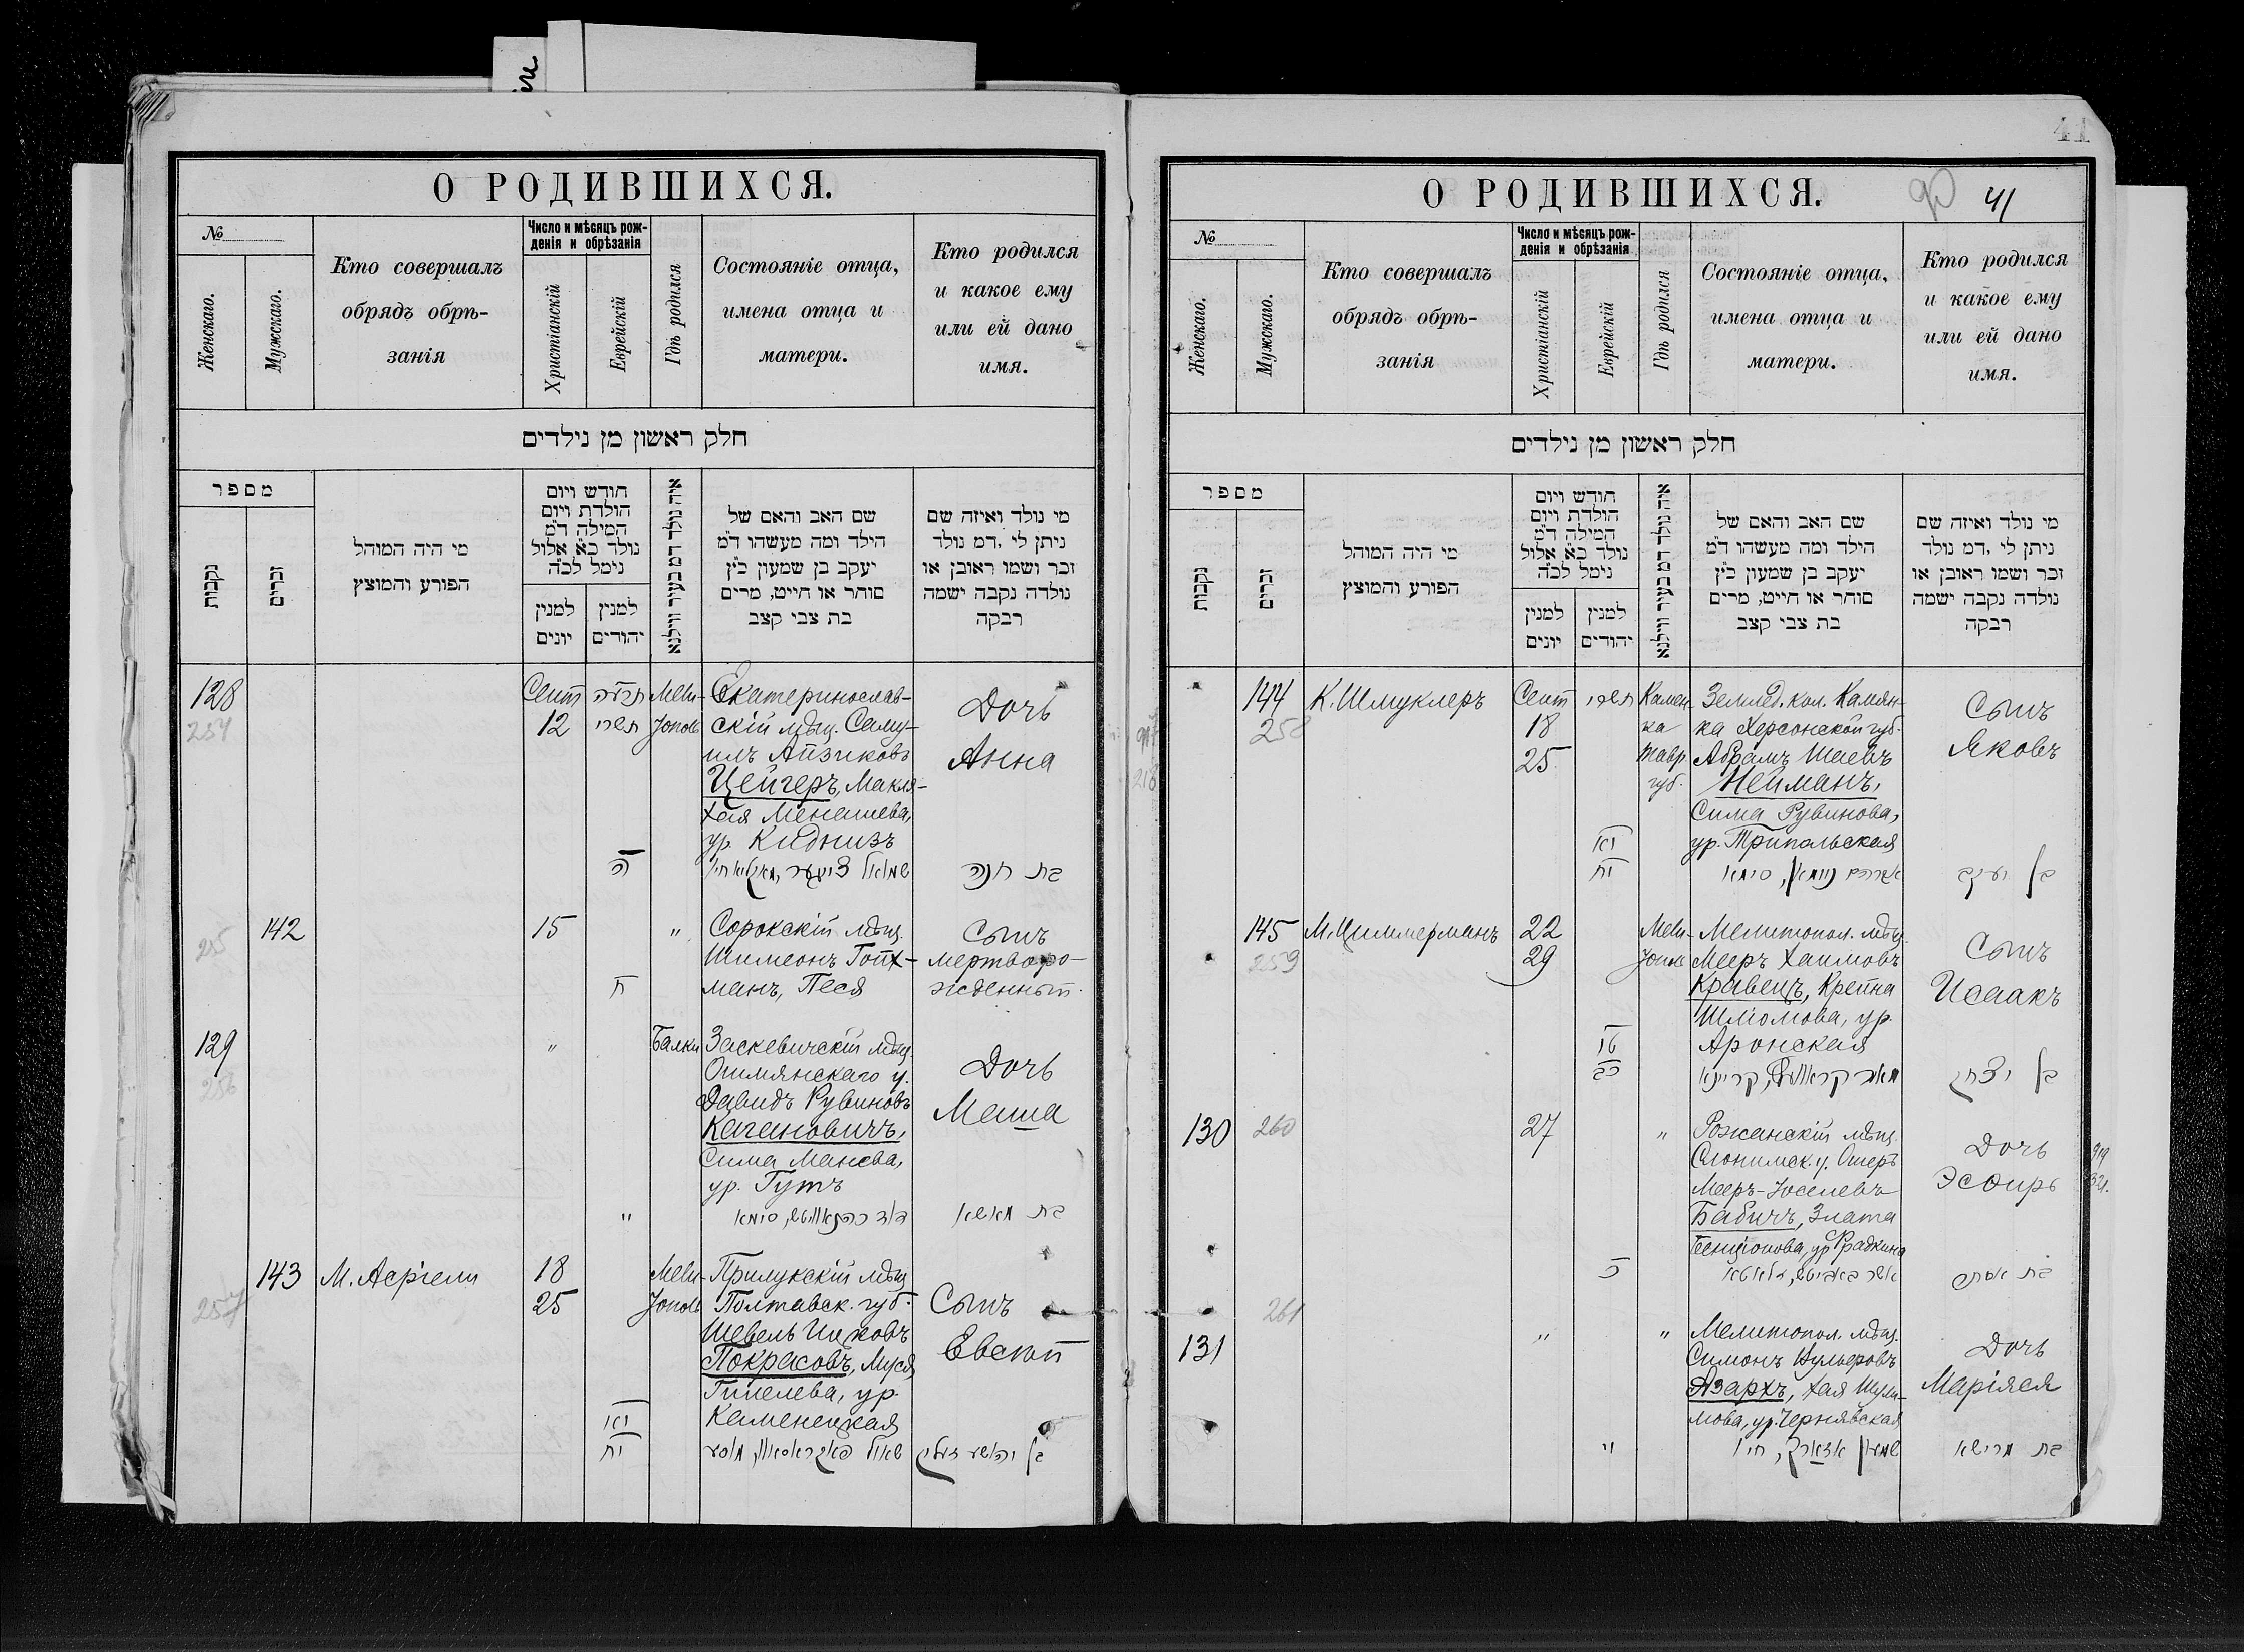 О РОДИВШИХСЯ.
№
Женскаго.
Мужскаго.
Кто совершалъ
обрядъ обрѣ-
занія
Число и мѣсяцъ рож-
денія и обрѣзанія
Христіанскій
Еврейскій
Гдѣ родился
Состояніе отца,
имена отца и
матери.
Кто родился
и какое ему
или ей дано
имя.
חלק ראשון מן נילדים
מספר
נקבות
זכרים
מי היה המוהל
הפורע והמוצץ
חודש ויום
הולדת ויום
המילה ד״מ
נולד כ״א אלול
נימל לכ״ה
למנין
יונים
למנין
יהודים
איה נולד דמ בעיר ווילנא
שם האב והאם של
הילד ומה מעשהו ד״מ
יעקב בן שמעון כ״ץ
סוחר או חייט, מרים
בת צבי קצב
מי נולד ואיזה שם
ניתן לי ,דמ נולד
זכר ושמו ראובן או
נולדה נקבה ישמה
רבקה
128
254
Сент
12
תשרי
Мели-
Екатеринослав-
скій мѣщ. Саму-
илъ Айзиковъ
Цейгеръ, Макля-
Хая Менашева,
ур. Киднизъ
Дочь
Анна
ה
בת חנה
142
255
15
"
Сорокскій мѣщ.
Шимеонъ Гойх-
манъ, Песя
Сынъ
мертворо-
жденный.
ח
129
256
"
Балки
Заскевичскій мѣщ.
Ошмянскаго у.
Давидъ Рувиновъ
Кагановичъ,
Сима Манева,
ур. Гутъ
Дочь
Маша
"
בת מאשא
143
257
М. Асріели
18
25
Мели-
тополь
Прилукскій мѣщ
Полтавск. губ.
Шевель Ицковъ
Покрасовъ, Муся
Гишелева, ур.
Каменецкая
Сынъ
Евсей
יא
יח
О РОДИВШИХСЯ.
41
41
№
Женскаго.
Мужскаго.
Кто совершалъ
обрядъ обрѣ-
занія
Число и мѣсяцъ рож-
денія и обрѣзанія
Христіанскій
Еврейскій
Гдѣ родился
Состояніе отца,
имена отца и
матери.
Кто родился
и какое ему
или ей дано
имя.
חלק ראשון מן נילדים
מספר
נקבות
זכרים
מי היה המוהל
הפורע והמוצץ
חודש ויום
הולדת ויום
המילה ד״מ
נולד כ״א אלול
נימל לכ״ה
למנין
יונים
למנין
יהודים
איה נולד דמ בעיר ווילנא
שם האב והאם של
הילד ומה מעשהו ד״מ
יעקב בן שמעון כ״ץ
סוחר או חייט, מרים
בת צבי קצב
מי נולד ואיזה שם
ניתן לי ,דמ נולד
זכר ושמו ראובן או
נולדה נקבה ישמה
רבקה
144
258
К. Шмуклеръ
Сент
18
25
תשרי
Камен-
ка
Тавр
губ.
Землед. кол. Камян-
ка Херсонской губ.
Абрамъ Шаевъ
Нейманъ,
Сима Рувинова,
ур. Трипольская
Сынъ
Яковъ
יא
יח
אברהם ניימאן, סימא
בן יעקב
145
259
М. Циммерманъ
22
29
Мели-
тополь
Мелитопол. мѣщ.
Мееръ Хаимовъ
Кравецъ, Крейна
Шліомова, ур.
Аронская
Сынъ
Исаакъ
טו
כב
בן יצחק
130
260
27
"
Рожанскій мѣщ.
Слонимск. у. Ошеръ
Мееръ-Іоселевъ
Бабичъ, Злата
Бенціонова, ур. Фрадкина
Дочь
Эсѳирь
כ
בת אסתר
131
261
"
"
Мелитопол. мѣщ.
Симонъ
Азархъ, Хая Шули-
мова, ур. Чернявская
Дочь
Маріяся
"
שמעון אזארך, חיי׳
בת מרישא